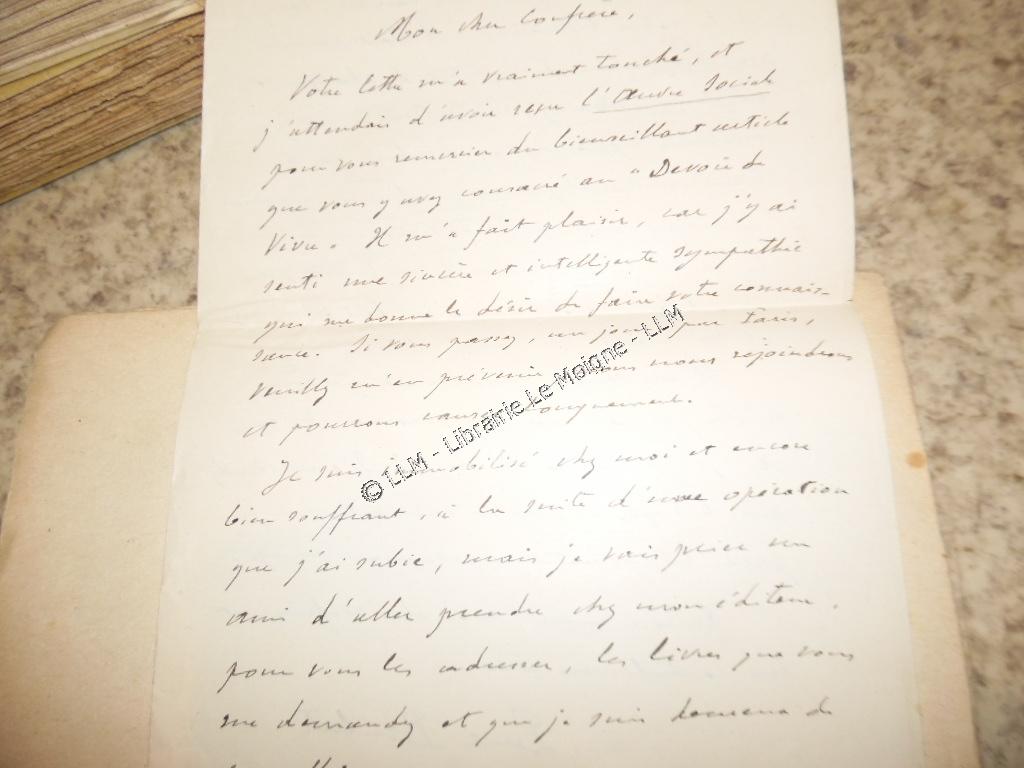 Mon cher Confrère,
Votre lettre m'a vraiment touché, et
j'attendais d'avoir reçu l'Œuvre Sociale
pour vous remercier du bienveillant article
que vous y avez consacré au "Devoir de
Vivre. Il m'a fait plaisir, car j'y ai
senti une sincère et intelligente sympathie
qui me donne le désir de faire votre connais-
sance. Si vous passez, un jour, par Paris,
veuillez m'en prévenir nous nous rejoindrons
et pourrons causer longuement.
Je suis immobilisé chez moi et encore
bien souffrant, à la suite d'une opération
que j'ai subie, mais je vais prier un
ami d'aller prendre chez mon éditeur,
pour vous les adresser, les livres que vous
me demandez et que je suis de
© LLM - Librairie Le Moigne - LLM